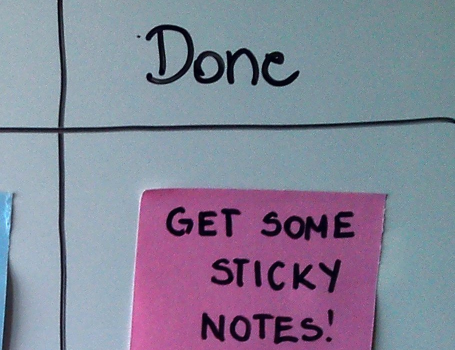 Done
GET SOME
STICKY
NOTES!